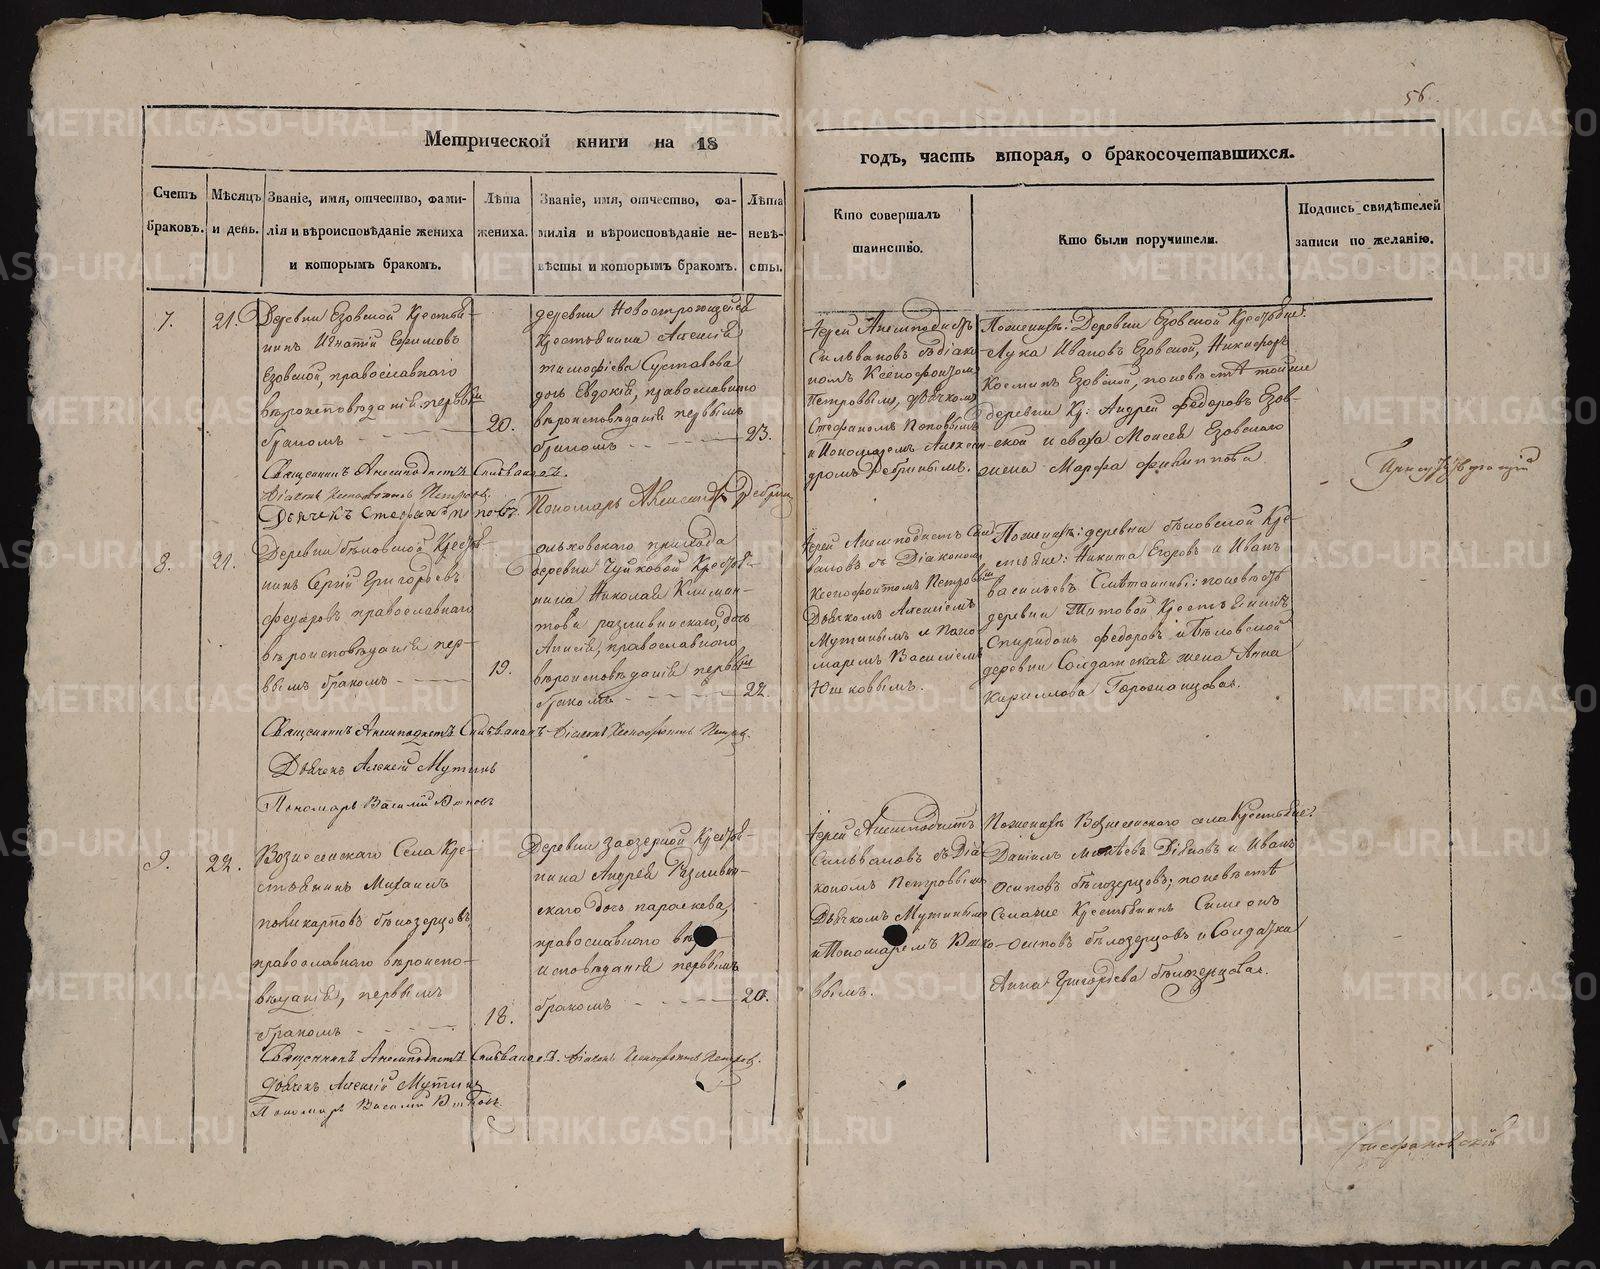 56.
Метрической книги на 18
годъ, часть вторая, о бракосочетавшихся.
Счетъ браковъ.
Мѣсяцъ и день.
Званіе, имя, отчество, фами-
лія и вѣроисповѣданіе жениха
и которымъ бракомъ.
Лѣта
жениха.
Званіе, имя, отчество, фа-
милія и вѣроисповѣданіе не-
вѣсты и которымъ бракомъ.
Лѣта
невѣ-
сты.
Кто совершалъ
таинство.
Кто были поручители.
Подпись свидѣтелей
записи по желанію.
7.
21.
Деревни Езовской Крестья-
нинъ Игнатій Ефимовъ
Езовской, православнаго
вѣроисповѣданія первым
бракомъ
20.
деревни
Крестьянина Алексія
Тимофіева Суставова
дочь Евдокія, православнаго
вѣроисповѣданія первымъ
бракомъ
23.
Іерей Анемподистъ
Сильвановъ съ діако-
номъ Ксенофонтом
Петровымъ, дьячкомъ
Стефаномъ Поповымъ
и Пономаремъ Алексан-
дромъ Ребринымъ.
По женихѣ: Деревни Езовской Крестьяне:
Лука Ивановъ Езовской, Никифоръ
Косминъ Езовской, по невѣстѣ той же
деревни Кр: Андрей Федоровъ Езов-
ской и сваха Моисея Езовскаго
жена Марфа Филиппова
Священникъ Анемподистъ Сильвановъ.
Діаконъ Ксенофонтъ Петровъ.
Дьячекъ Стефанъ Поповъ.
Пономарь Александръ Ребрин
8.
21.
Деревни Бѣловской Крестья-
нинъ Сергій Григорьевъ
Федоровъ православнаго
вѣроисповѣданія пер-
вымъ бракомъ
19.
Ольховскаго прихода
деревни Чуйковой Крестья-
нина Николая Климон-
това разливинскаго, дочь
Анисія, православнаго
вѣроисповѣданія первым
бракомъ
22.
Іерей Анемподистъ Силь-
вановъ съ Діакономъ
Ксенофонтомъ Петровым
Дьячкомъ Алексіемъ
Мутинымъ и Поно-
маремъ Василіемъ
Юшковымъ.
По женихѣ: деревни бѣловской Кре-
стьяне: Никита Егоровъ и Иванъ
Васильевъ Смѣтанины: по невѣстѣ
деревни Титовой Крестьянинъ
Спиридонъ Федоровъ и Бѣловской
деревни Солдатская жена Анна
Кириллова
Священникъ Анемподистъ Сильвановъ Діаконъ Ксенофонтъ Петров.
Дьячекъ Алексій Мутинъ
Пономарь Василій Юшковъ
9.
22.
Вознесенскаго Села Кре-
стьянинъ Михаилъ
Поликарповъ бѣлозерцовъ
православнаго вѣроиспо-
вѣданія, первымъ
бракомъ
18.
Деревни Заозерной Крестья-
нина Андрея Разливин-
скаго дочь параскева,
православнаго вѣро-
исповѣданія первымъ
бракомъ
20.
Іерей Анемподистъ
Сильвановъ съ Діа-
кономъ Петровымъ
Дьячкомъ Мутинымъ
и Пономаремъ Юшко-
вымъ.
По женихѣ Вознесенскаго села Крестьяне:
Даніилъ Матвѣевъ Дьяковъ и Иванъ
Осиповъ бѣлозерцовъ; по невѣстѣ
Села же Крестьянинъ Симеонъ
Осиповъ бѣлозерцовъ и Солдатка
Анна Григорьева бѣлозерцовая.
Священникъ Анемподистъ Сильвановъ. Діаконъ Ксенофонтъ Петров.
Дьячекъ Алексій Мутинъ
Пономарь Василій Юшковъ.
Присутствующій
Стефановскій
METRIKI.GASO-URAL.RU